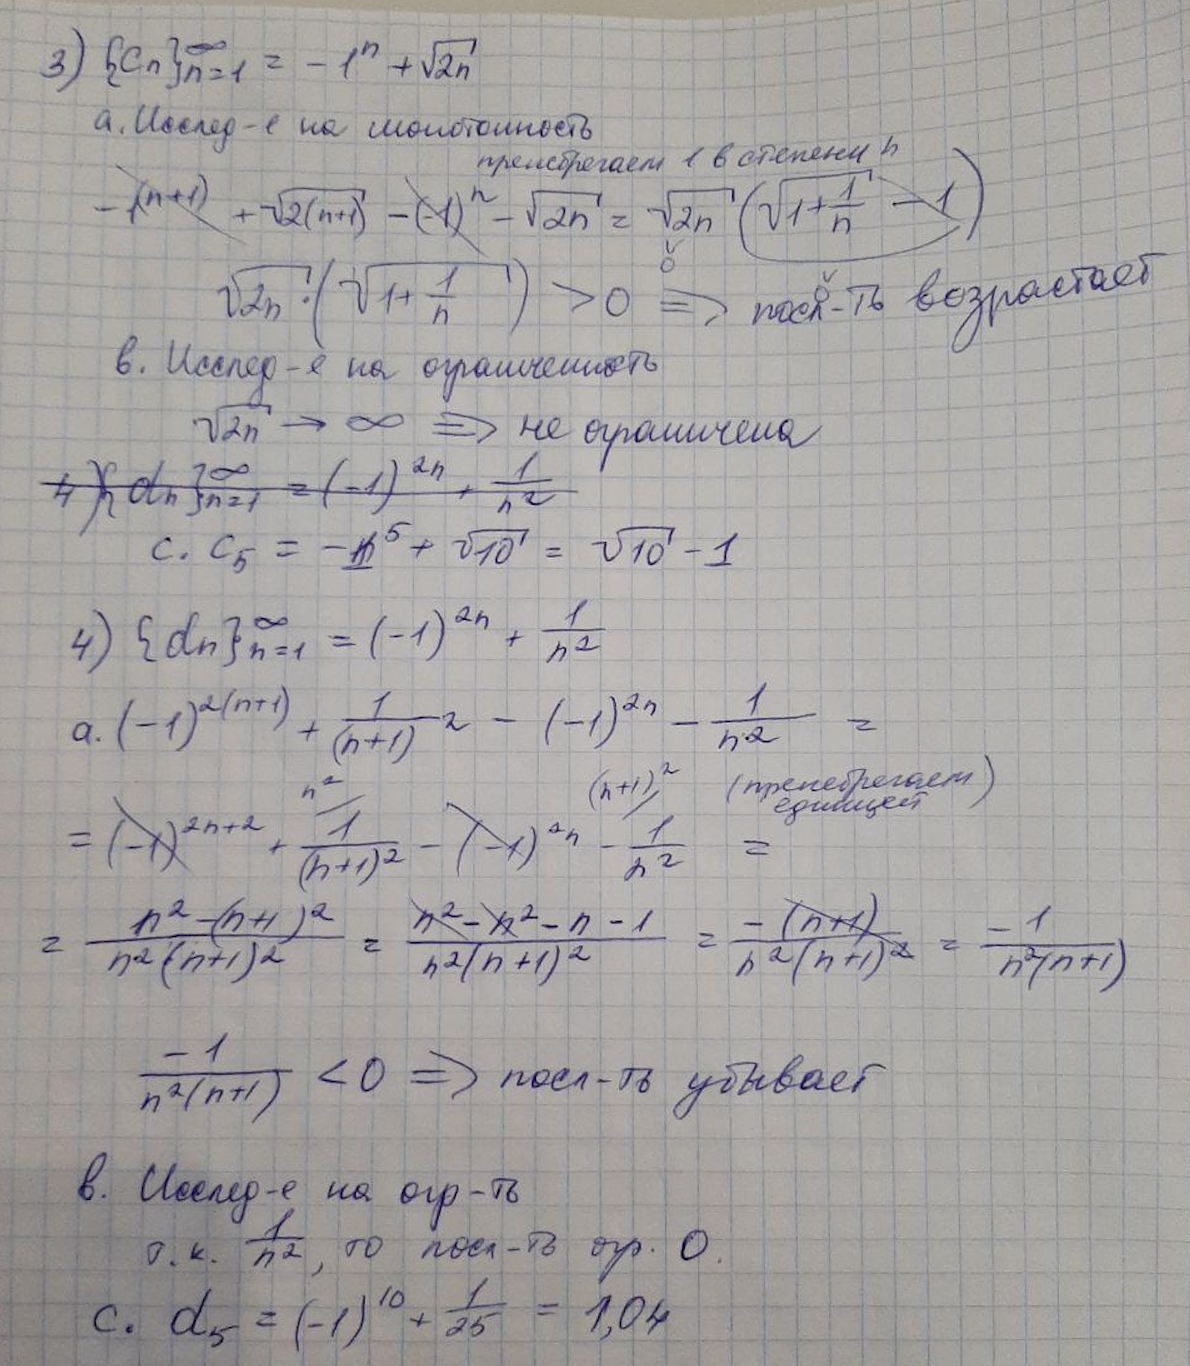 3) {Cn}∞n=1 = -1^n + √2n
а. Исслед-е на монотонность
пренебрегаем 1 в степени n
-1^(n+1) + √2(n+1) - (-1)^n - √2n = √2n (√1+1/n - 1)
√2n · (√1+1/n) > 0 => посл-ть возрастает
в. Исслед-е на ограниченность
√2n → ∞ => не ограничена
4) {dn}∞n=1 = (-1)^2n + 1/n²
c. C5 = -1^5 + √10 = √10 - 1
4) {dn}∞n=1 = (-1)^2n + 1/n²
а. (-1)^2(n+1) + 1/(n+1)² - (-1)^2n - 1/n² =
n² (n+1)² (пренебрегаем единицей)
= (-1)^2n+2 + 1/(n+1)² - (-1)^2n - 1/n² =
= n²-(n+1)²/n²(n+1)² = n²-n²-n-1/n²(n+1)² = -(n+1)/n²(n+1)² = -1/n²(n+1)
-1/n²(n+1) < 0 => посл-ть убывает
в. Исслед-е на огр-ть
т.к. 1/n², то посл-ть огр. 0.
c. d5 = (-1)^10 + 1/25 = 1,04